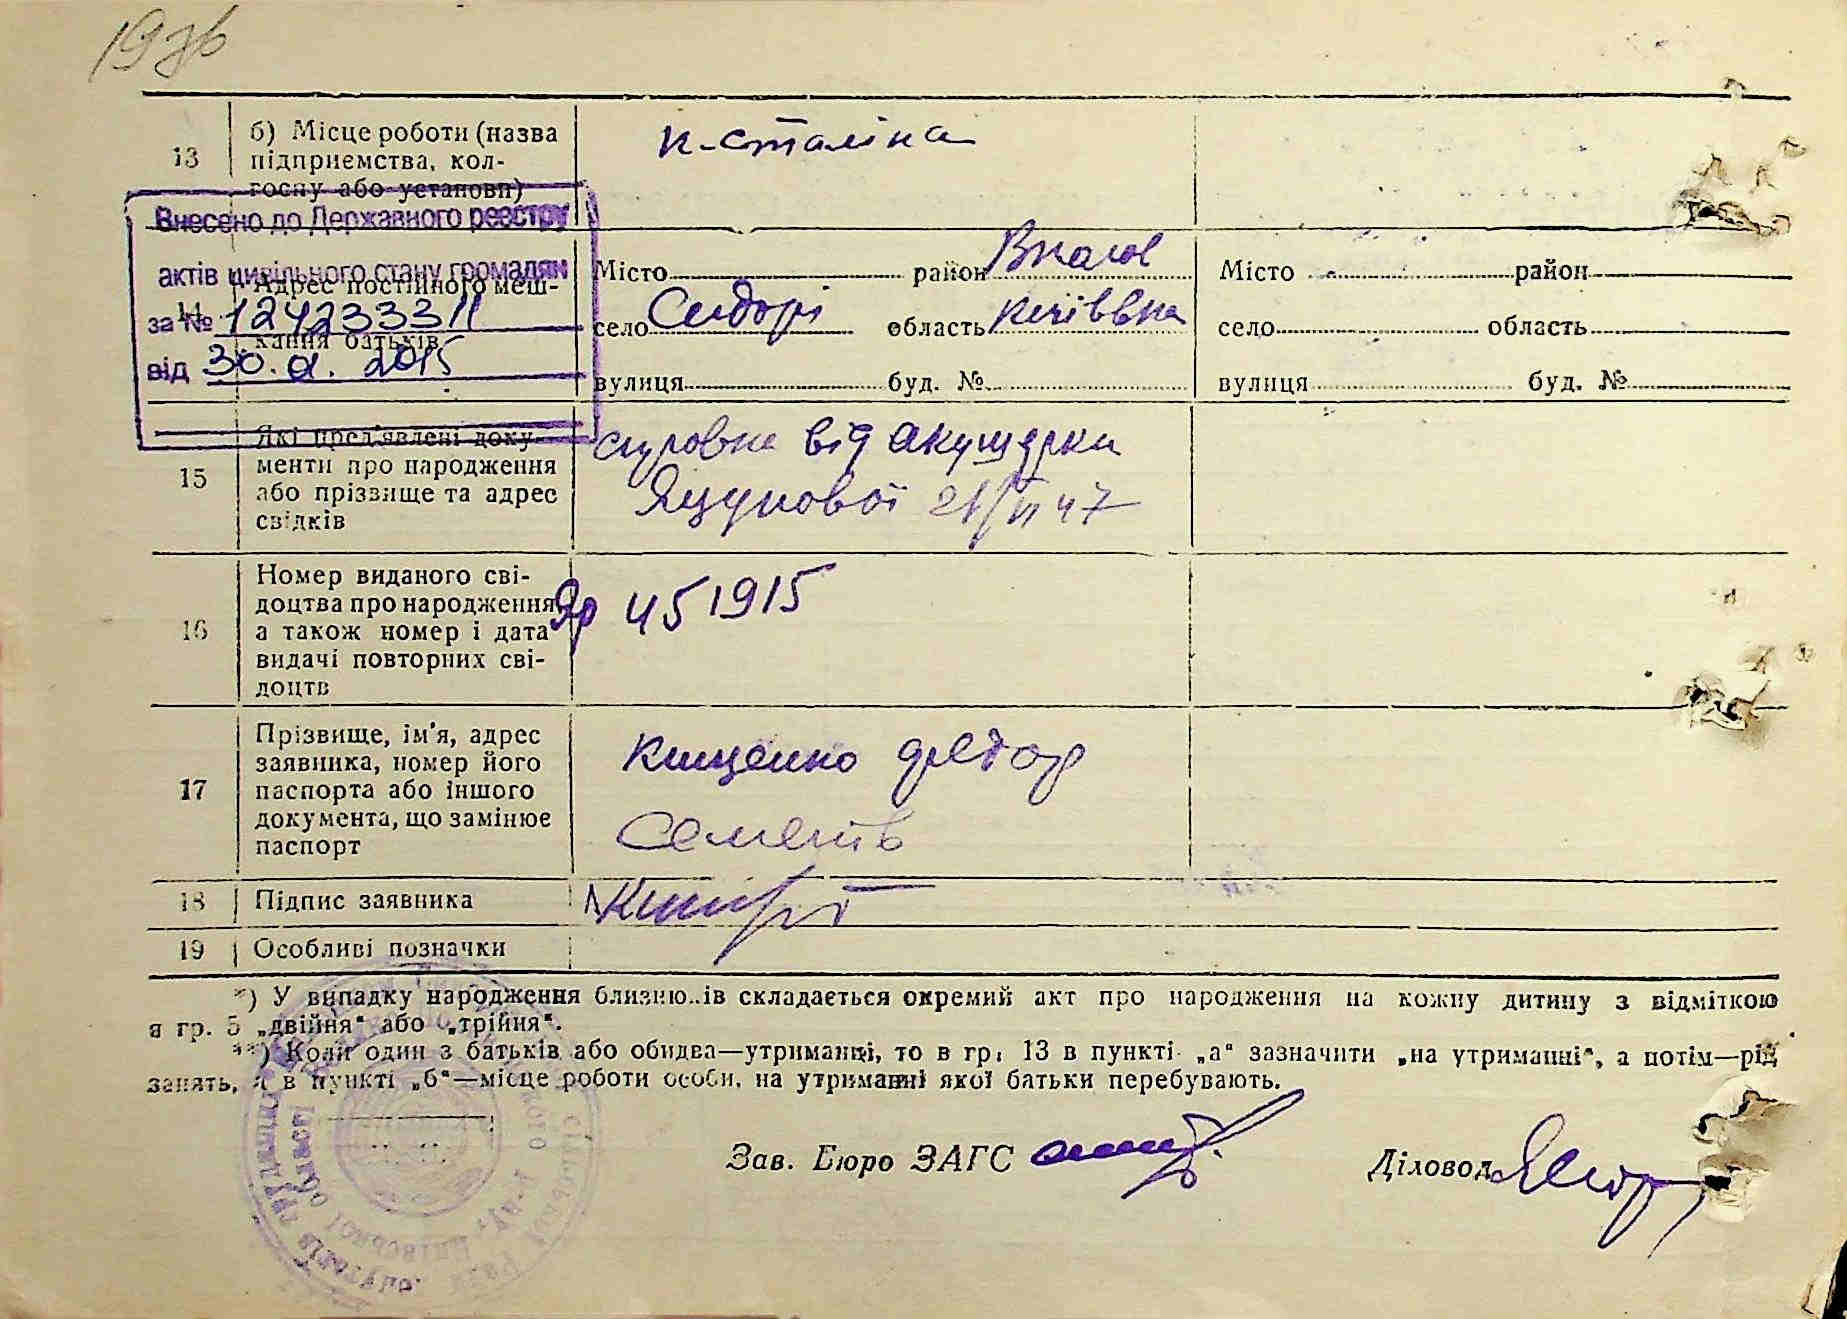 197в
13
б) Місце роботи (назва
підприємства, кол-
госпу або установи)
к-сталіна
Внесено до Державного реєстру
актів цивільного стану громадян
за №
від 30. 2015
14
Адрес постійного меш-
кання батьків
Місто район
село Сидорі область Київська
вулиця буд. №
Місто район
село область
вулиця буд. №
15
Які пред'явлені доку-
менти про народження
або прізвище та адрес
свідків
від акушерки
21/VI 47
16
Номер виданого сві-
доцтва про народження,
а також номер і дата
видачі повторних сві-
доцтв
451915
17
Прізвище, ім'я, адрес
заявника, номер його
паспорта або іншого
документа, що замінює
паспорт
Кищенко Федор
Семенів
18
Підпис заявника
19
Особливі позначки
*) У випадку народження близню..ів складається окремий акт про народження на кожну дитину з відміткою
я гр. 5 „двійня“ або „трійня“.
**) Коли один з батьків або обидва—утриманці, то в гр. 13 в пункті „а“ зазначити „на утриманні“, а потім—рід
занять, а в пункті „б“—місце роботи особи, на утриманні якої батьки перебувають.
Зав. Бюро ЗАГС
Діловод